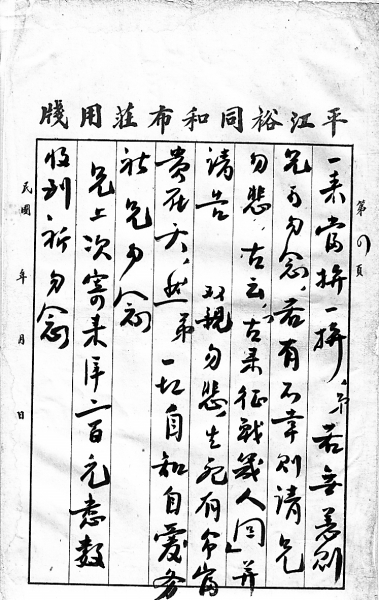 平江裕同和布莊用牋
第 頁
一來當拚一拚，弟若無恙則
兄可勿念，若有不幸則請兄
勿悲，古云，「古來征戰幾人回」并
請告 双親勿悲，生死有命富
貴在天，然弟一切自知自愛務
祈兄勿念
兄上次寄來洋二百元悉数
收到祈勿念
民國 年 月 日